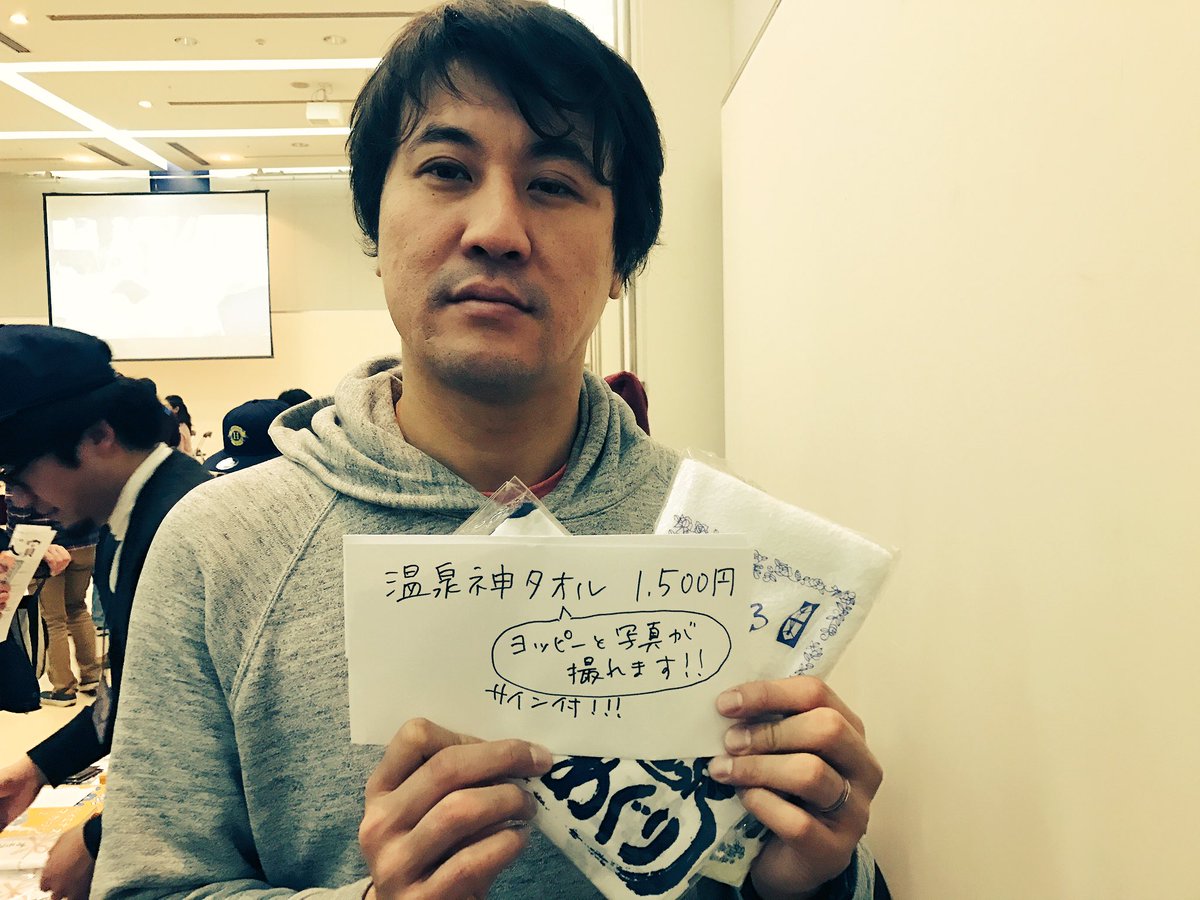 温泉神タオル 1.500円
ヨッピーと写真が
撮れます!!
サイン付!!!
3
めぐり